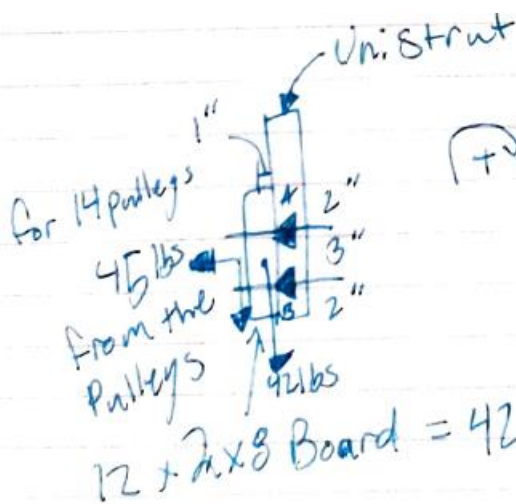 Unistrut
1"
+
for 14 pulleys
A 2"
45 lbs
3"
from the
B 2"
Pulleys
42 lbs
12 x 2 x 8 Board = 42